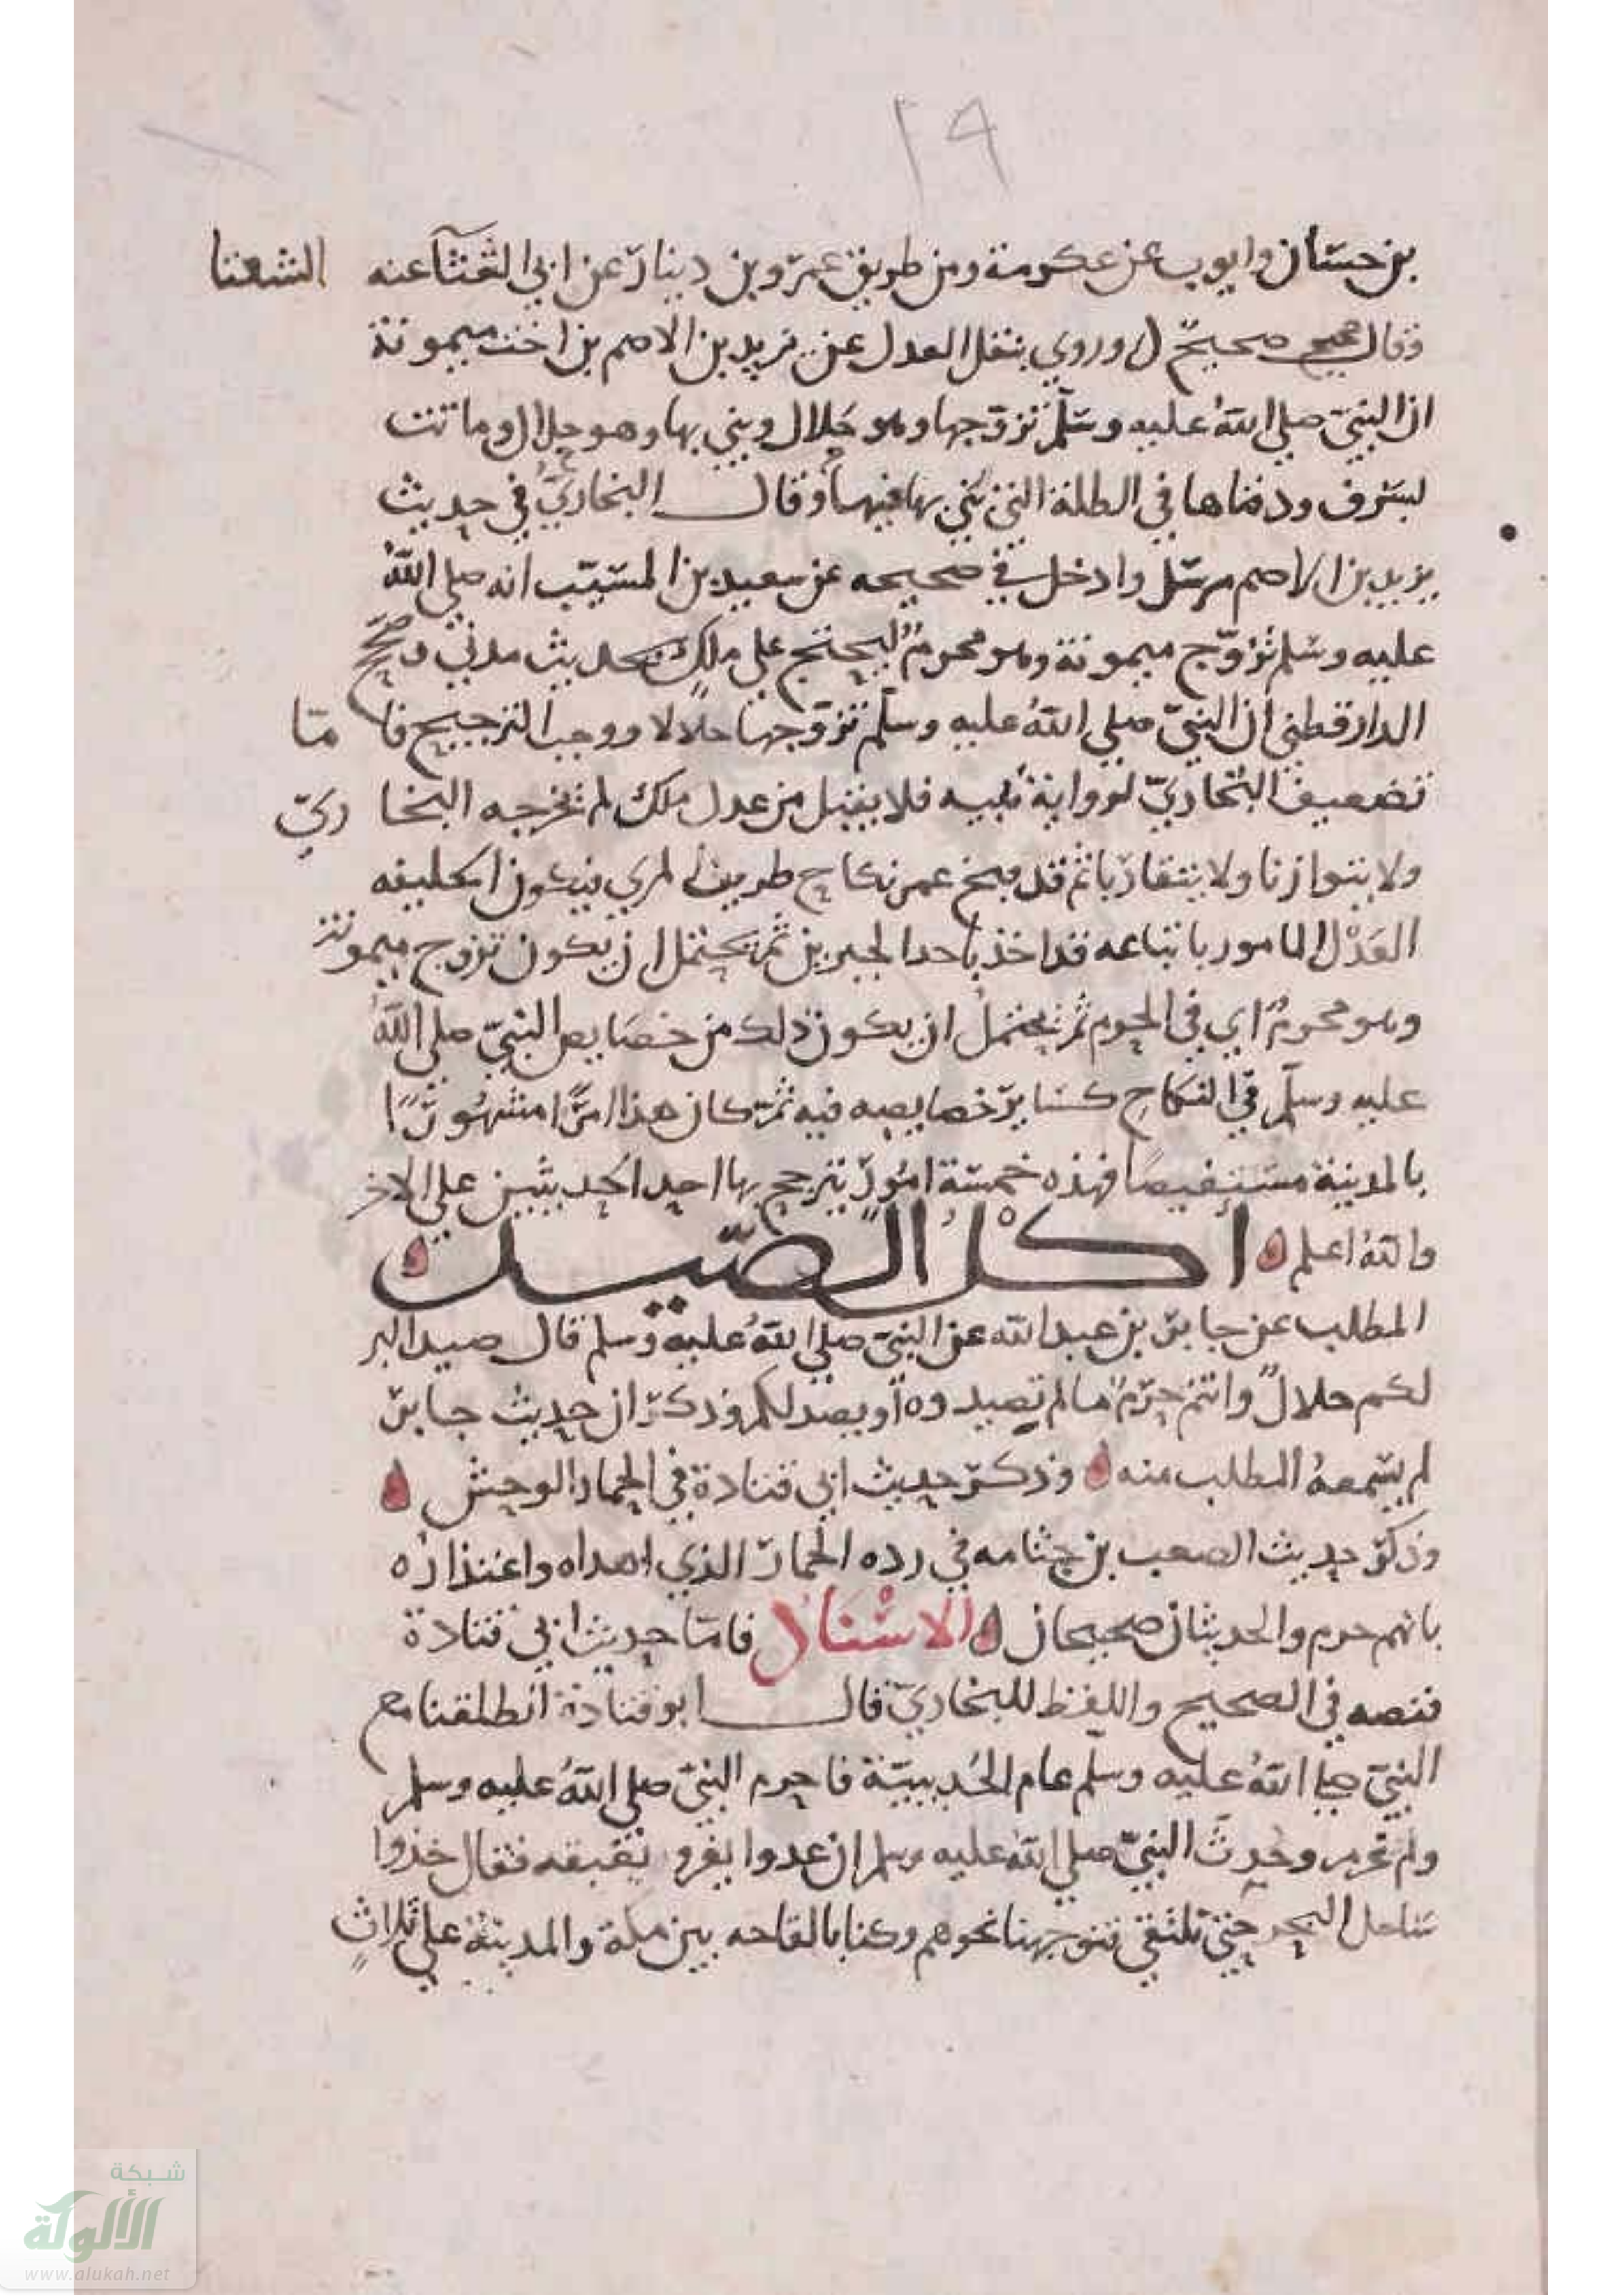 ٢٩
بن حسّان وايوب عن عكرمة ومن طريق عمرو بن دينار عن ابي الشعثآ عنه الشعثا
وقال صحيح صحيح وروي بنقل العدل عن يزيد بن الاصم بن اخت ميمونة
ان النبيّ صلي اللهُ عليه وسلّم تزوّجها وهو حَلال وبني بها وهو حلال وماتت
بسَرف ودفناها في الظلة التي بَني بها فيها وقال البخاريّ في حديث
يزيد بن الاصم مرسَل وادخل في صحيحه عن سعيد بن المسَيّب انه صلي اللهُ
عليه وسَلم تزوّج ميمونة وهو محرمٌ ليحتج علي ملكٍ بحديث مدني وصَحّح
الدارقطني أن النبيّ صلي اللهُ عليه وسلّم تزوّجها حلالا ووجب الترجيح فا مّا
تضعيف البُخاريّ لرواية نُبيه فلا يقبل من عدل ملك لم يخرجه البخا ريّ
ولا يتوازنا ولا يتقاربا ثم قد فسخ عمر نكاح طريف المري فيكون الخليفه
العَدْل المامور باتباعه قد اخذ باحد الخبرين ثمّ يحتمل ان يكون تزوج ميمونة
وهو محرمٌ اي في الحرم ثمّ يحتملُ ان يكون ذلك من خصَايص النبيّ صلي اللهُ
عليه وسلّم في النكاحِ كسَاير خصايصه فيه ثمّ كان هذا امرًا مشهورًا
بالمدينة مسَتفيضًا فهذه خمسَة امُور يترجح بها احد الحديثين علي الاخر
والله اعلم اكلُ الصّيد
المطلب عن جابر بن عبد الله عن النبيّ صلي اللهُ عليه وسلم قال صيد البر
لكم حلالٌ وانتم حرمٌ ما لم تصيدوه او يصد لكم وذكر ان حديث جابر
لم يسَمعهُ المطلب منه وذكر حديث ابي قتادة في الحمار الوحش
وذكر حديث الصعب بن جثامه في رده الحمار الذي اهداه واعتذاره
بانهم حرم والحديثان صحيحان الاسْنَادُ فامّا حديث ابي قتادة
فنصه في الصحيح واللفظ للبخاريّ قال ابو قتادة انطلقنا مع
النبيّ صلي اللهُ عليه وسلم عام الحُديبيّة فاحرم النبيّ صلي اللهُ عليه وسلم
ولم يحرم وحُدِثَ النبيّ صلي اللهُ عليه وسلم ان عدوا يغزو بغيقه فقال خذوا
سَاحل البحر حتي نلتقي فتوجهنا نحوهم وكنا بالقاحه بين مكة والمدينة علي ثلاثٍ
شبكة
الألوكة
www.alukah.net